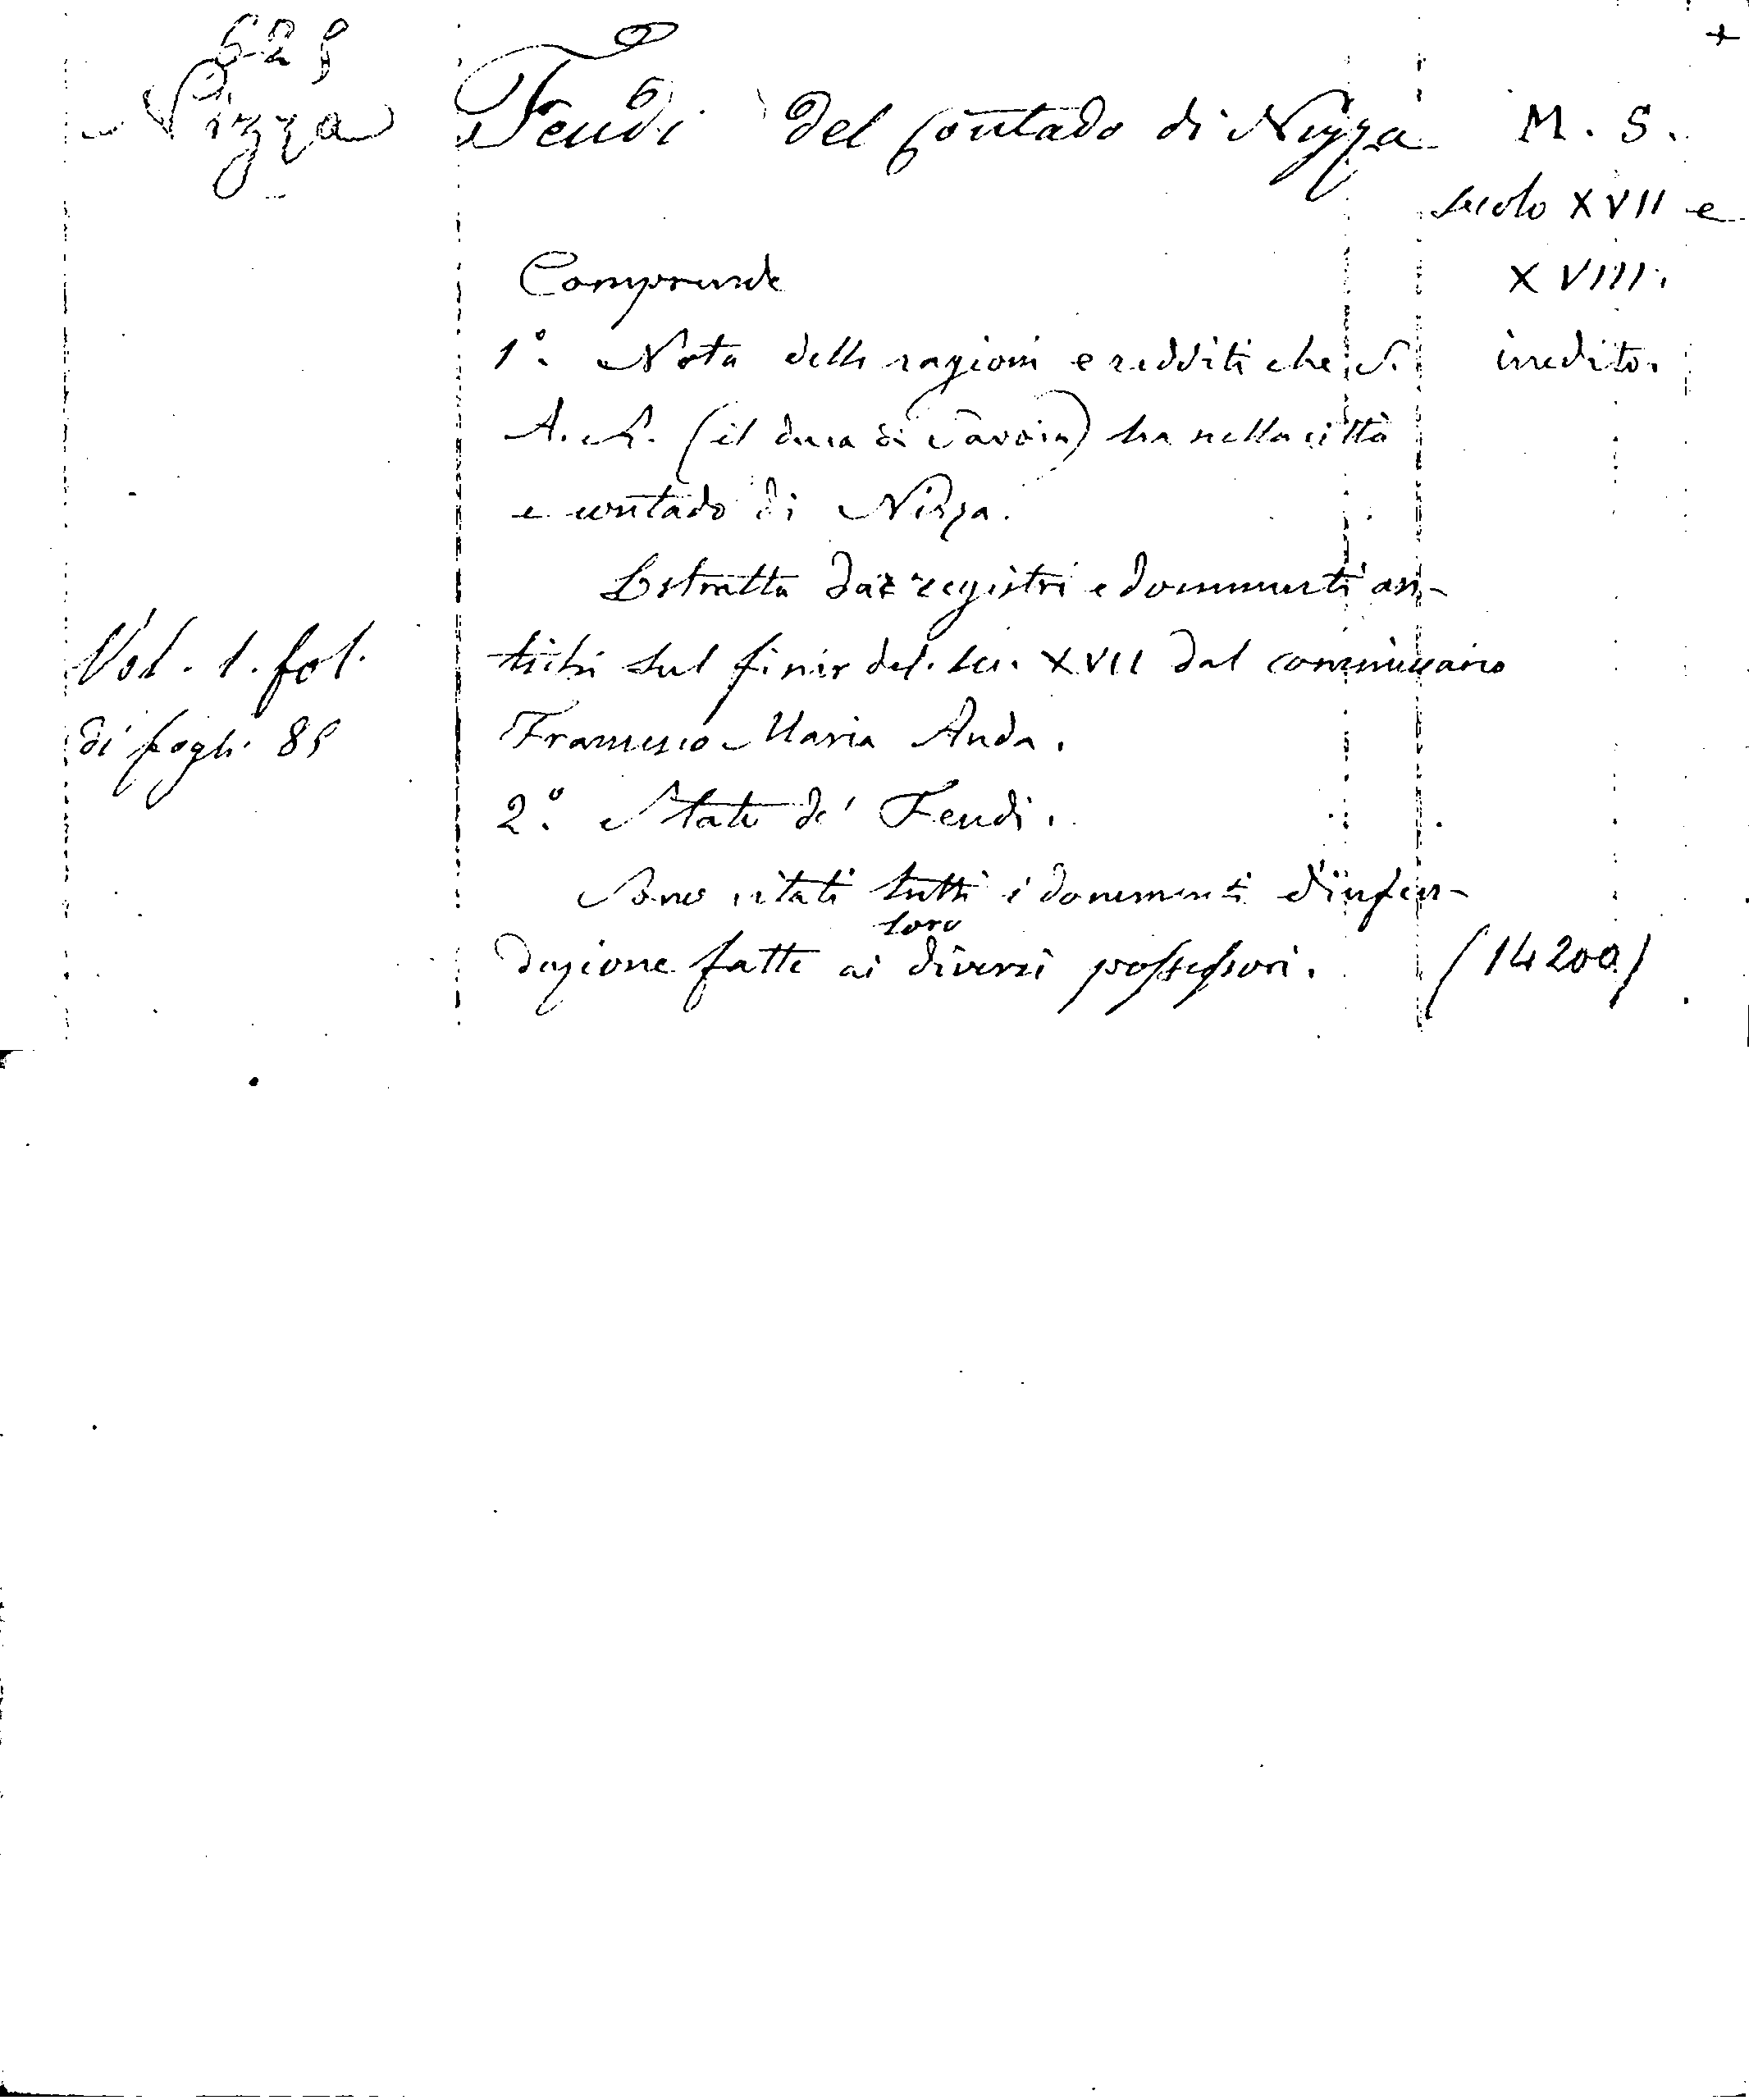 629
Nizza
Feudi del Contado di Nizza
M. S.
secolo XVII e
XVIII.
inedito.
Comprende
1º. Nota delle ragioni e redditi che S.
A. R. (il duca di Savoia) ha nella città
e contado di Nizza.
Estratta dai registri e documenti an-
tichi sul finir del sec. XVII dal commissario
Francesco Maria Auda.
2º. Stato de' Feudi.
Sono citati tutti i documenti d'infeu-
dazione fatte ai loro diversi possessori.
Vol. 1. fol.
di fogli 85
(14200)